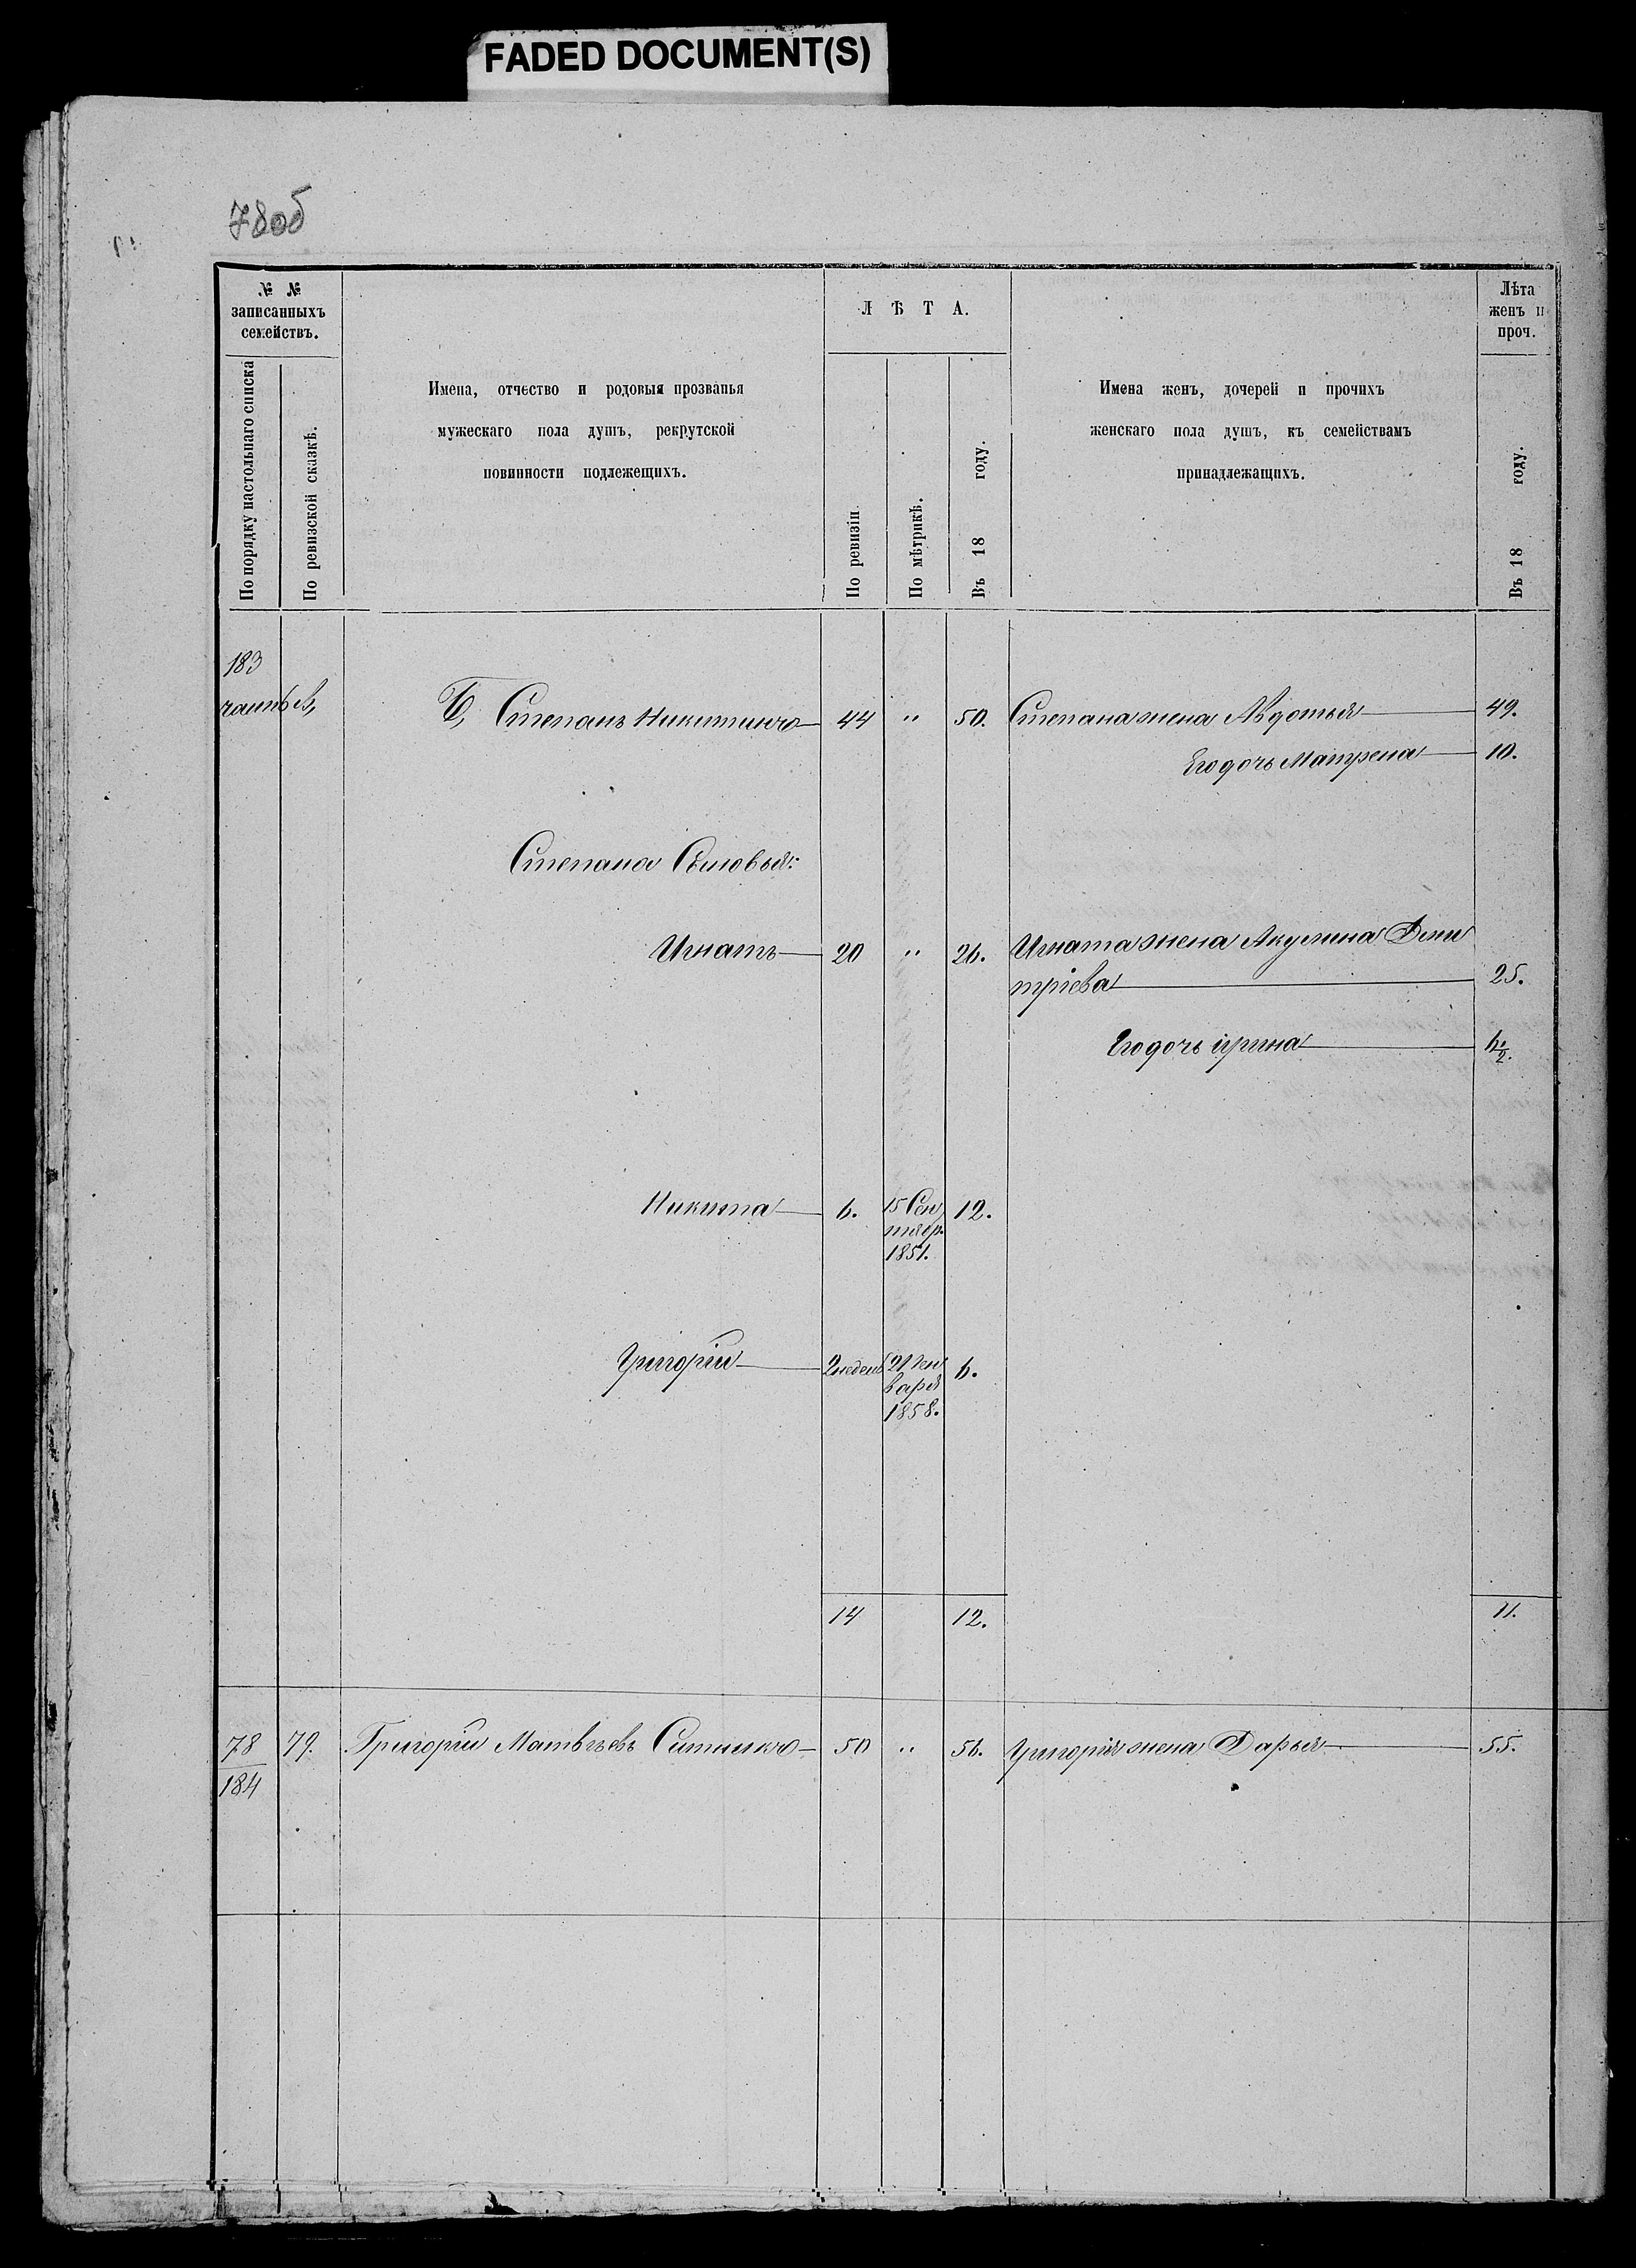 FADED DOCUMENT(S)
78об
№ №
записанныхъ
семействъ.
По порядку настольнаго списка
По ревизской сказкѣ.
Имена, отчество и родовыя прозванья
мужескаго пола душъ, рекрутской
повинности подлежещихъ.
ЛѢТА.
По ревизіи.
По мѣтрикѣ.
Въ 18 году.
Имена женъ, дочерей и прочихъ
женскаго пола душъ, къ семействамъ
принадлежащихъ.
Лѣта
женъ и
проч.
Въ 18 году.
183
Степанъ Никитинъ 44 " 50. Степана жена Авдотья 49.
Его дочь Матрена 10.
Степана Сыновья:
Игнатъ 20 " 26. Игната жена Акулина Дми
тріева 25.
Его дочь Ирина
Никита 6. 15 Сен 12.
тябр.
1851.
Григорій 2 недел 21 Ген 6.
варя
1858.
14 12. 11.
78 79. Григорій Матвѣевъ 50 " 56. Григорія жена Дарья 55.
184